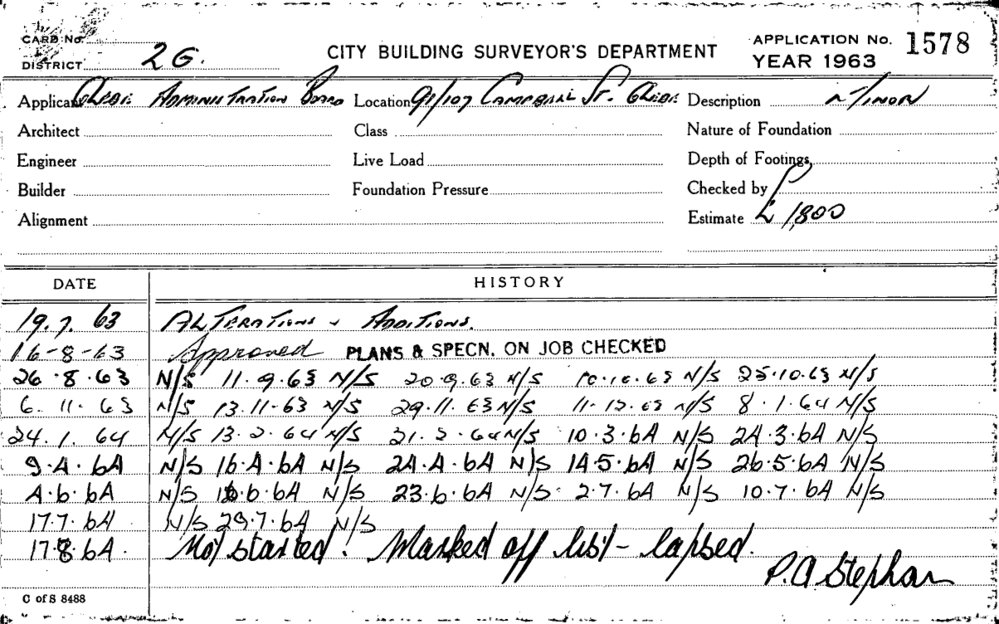 CARD No.
DISTRICT 2G.
CITY BUILDING SURVEYOR'S DEPARTMENT
APPLICATION No. 1578
YEAR 1963
Applicant Glebe Administration Board Location 91/107 Campbell St. Glebe Description Minor
Architect Class Nature of Foundation
Engineer Live Load Depth of Footings
Builder Foundation Pressure Checked by
Alignment Estimate £ 1,800
DATE HISTORY
19.7.63 ALTERATIONS & ADDITIONS.
16-8-63 Approved PLANS & SPECN. ON JOB CHECKED
26.8.63 N/S 11.9.63 N/S 20.9.63 N/S 10.10.63 N/S 25.10.63 N/S
6.11.63 N/S 13.11.63 N/S 29.11.63 N/S 11.12.63 N/S 8.1.64 N/S
24.1.64 N/S 13.2.64 N/S 21.2.64 N/S 10.3.64 N/S 24.3.64 N/S
9.4.64 N/S 16.4.64 N/S 24.4.64 N/S 14.5.64 N/S 26.5.64 N/S
4.6.64 N/S 16.6.64 N/S 23.6.64 N/S 2.7.64 N/S 10.7.64 N/S
17.7.64 N/S 29.7.64 N/S
17.8.64. Not started. Marked off list - lapsed.
P.A Stephan
C of S 8488